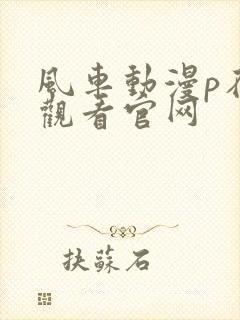 風車動漫p
觀看官网
抉蘇石